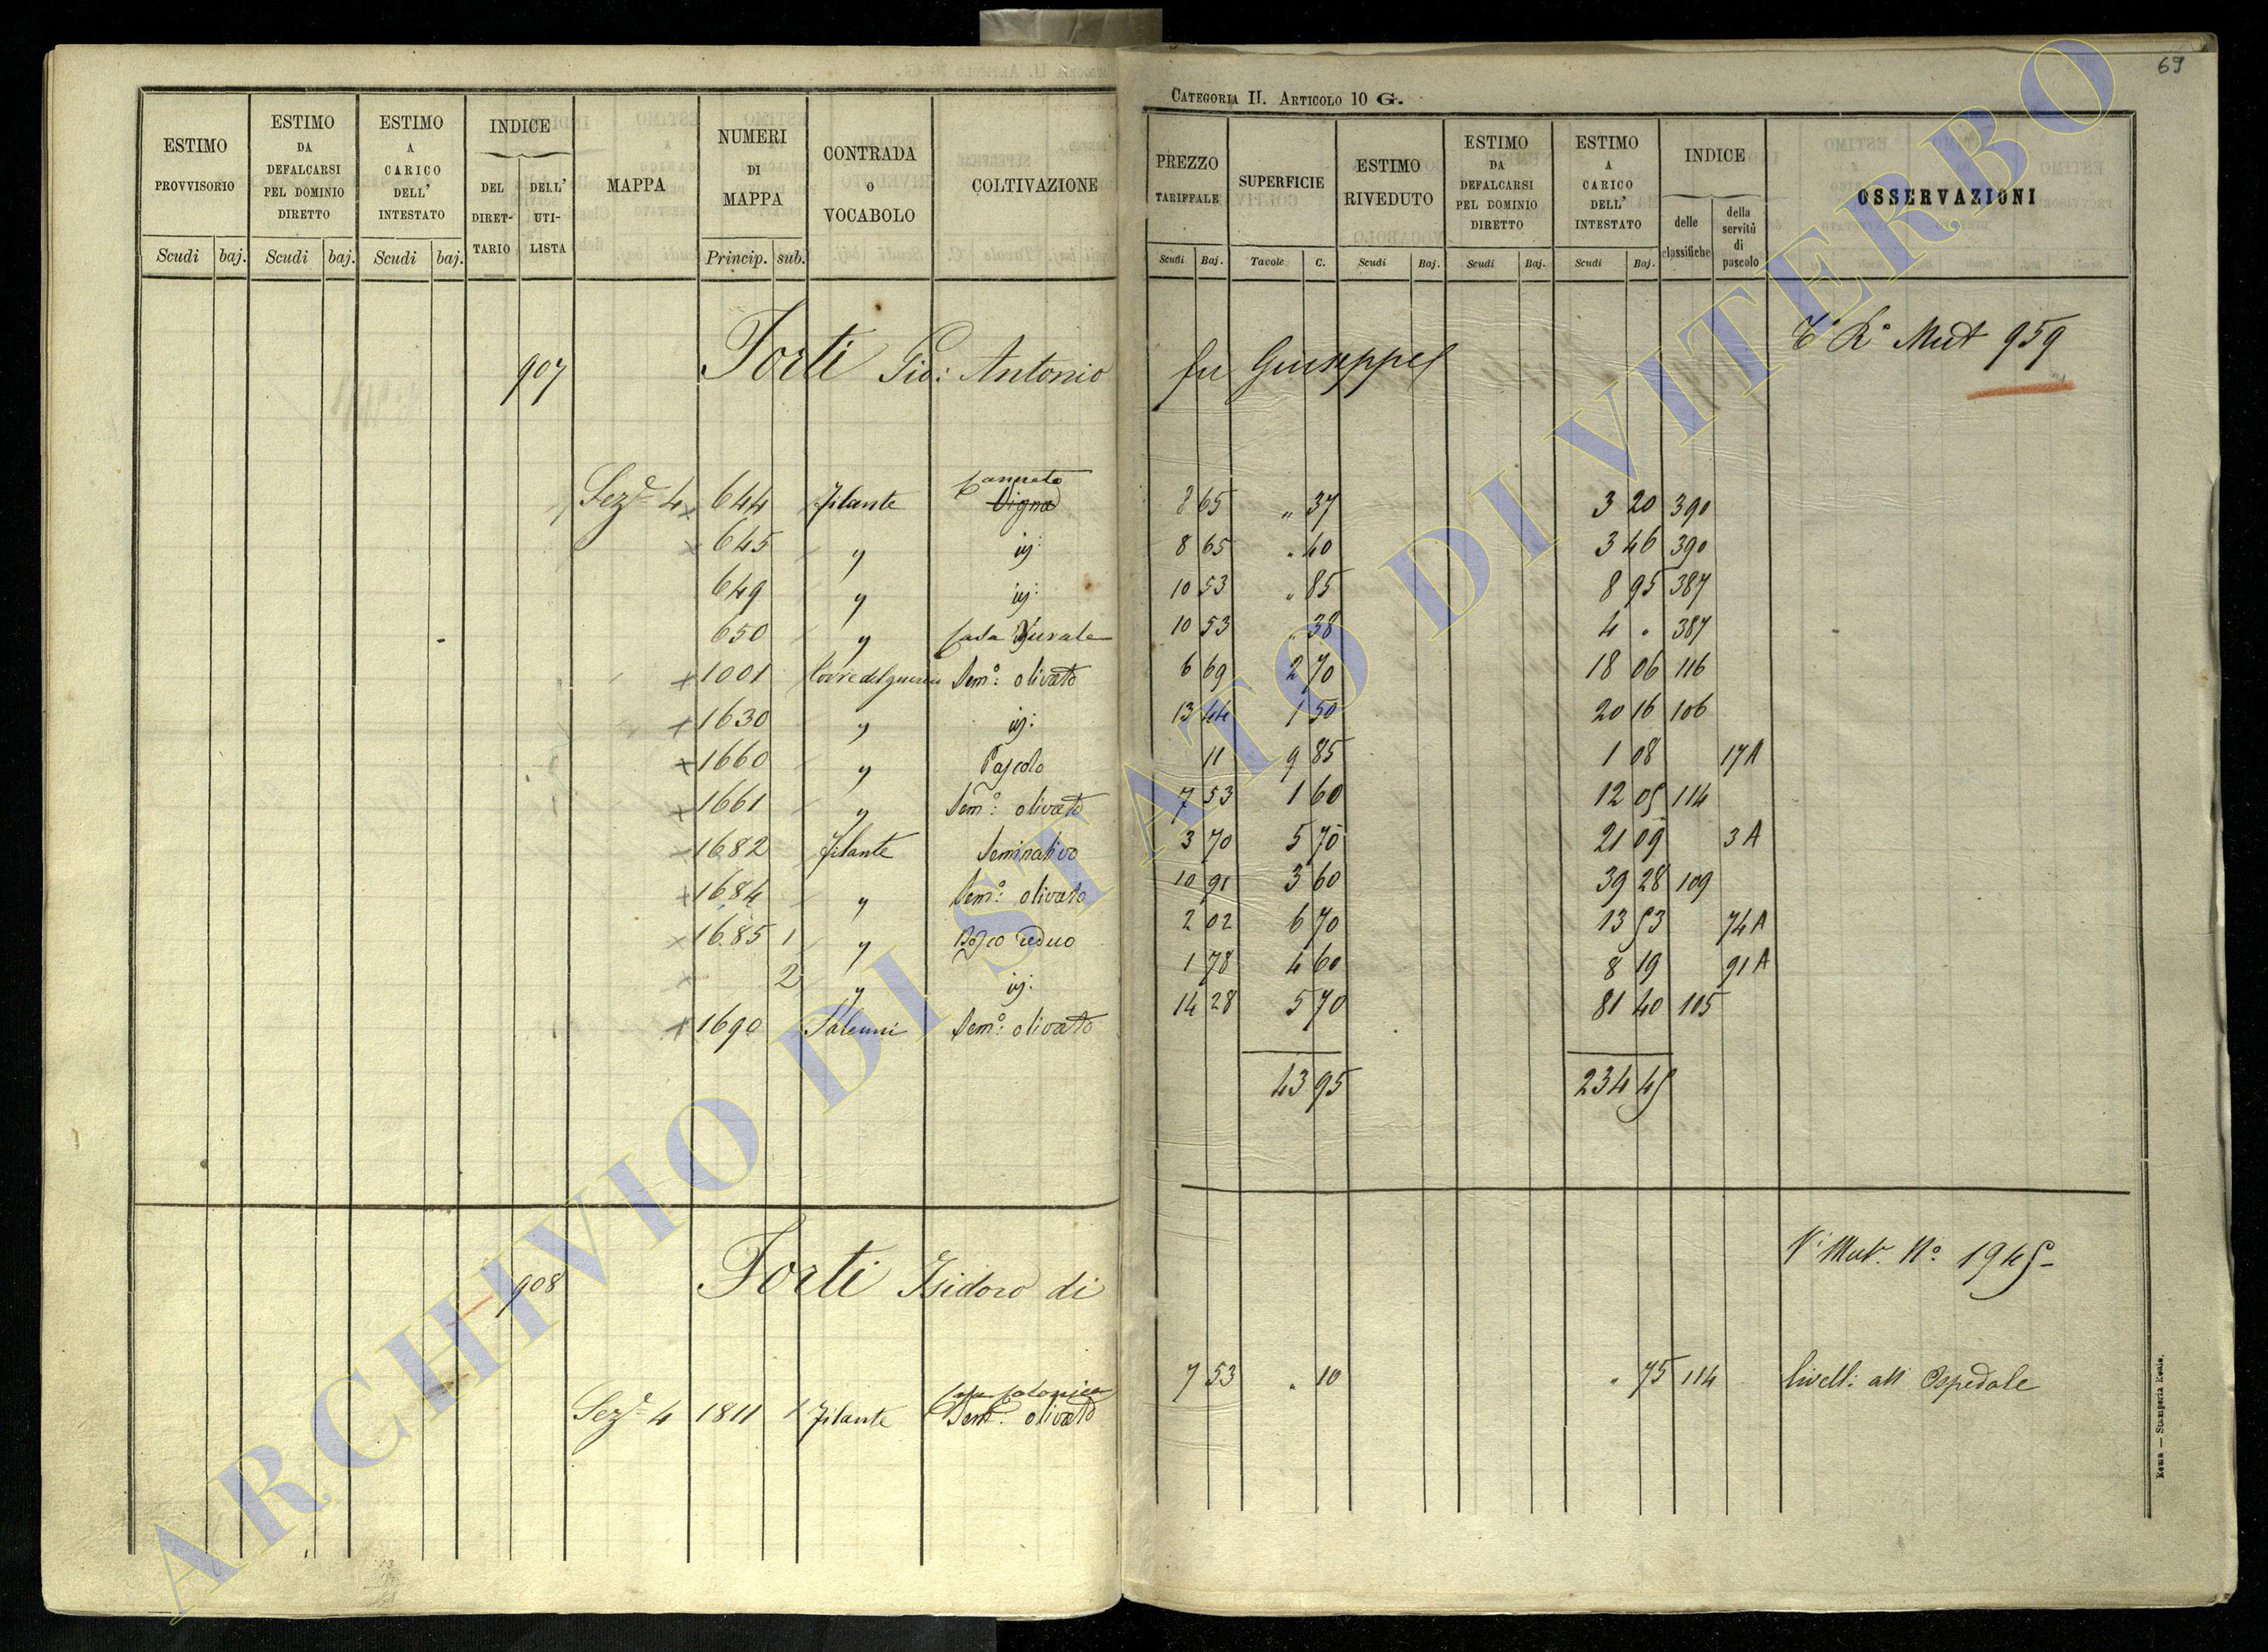 69
CATEGORIA II. ARTICOLO 10 G.
ESTIMO PROVVISORIO | ESTIMO DA DEFALCARSI PEL DOMINIO DIRETTO | ESTIMO A CARICO DELL' INTESTATO | INDICE DEL DIRETTARIO | DELL' UTILISTA | MAPPA | NUMERI DI MAPPA | CONTRADA O VOCABOLO | COLTIVAZIONE | PREZZO TARIFFALE | SUPERFICIE | ESTIMO RIVEDUTO | ESTIMO DA DEFALCARSI PEL DOMINIO DIRETTO | ESTIMO A CARICO DELL' INTESTATO | INDICE delle classifiche | della servitù di pascolo | OSSERVAZIONI
Scudi baj. Scudi baj. Scudi baj. Princip. sub. Scudi Baj. Tavole C. Scudi Baj. Scudi Baj. Scudi Baj.
907 Forti Gio: Antonio fu Giuseppe Mut 959
Sez.e 4 644 Filante Canneto Vigna 8 65 " 37 3 20 390
645 " id: 8 65 " 40 3 46 390
649 " id: 10 53 " 85 8 95 387
650 " Casa Rurale 10 53 " 38 4 " 387
1001 Sem.o olivato 6 69 2 70 18 06 116
1630 " id: 13 44 1 50 20 16 106
1660 " Pascolo 11 9 85 1 08 17A
1661 " Sem.o olivato 7 53 1 60 12 05 114
1682 Filante Seminativo 3 70 5 70 21 09 3A
1684 " Sem.o olivato 10 91 3 60 39 28 109
1685 1 " Bosco ceduo 2 02 6 70 13 53 74A
2 " id: 1 78 4 60 8 19 91A
1690 Sem.o olivato 14 28 5 70 81 40 105
43 95 234 45
908 Forti Isidoro di V. Mut. N.o 1945
Sez.e 4 1811 1 Filante Casa Colonica Sem.o olivato 7 53 " 10 " 75 114 livell: all Ospedale
Roma — Stamperia Reale.
ARCHIVIO DI STATO DI VITERBO